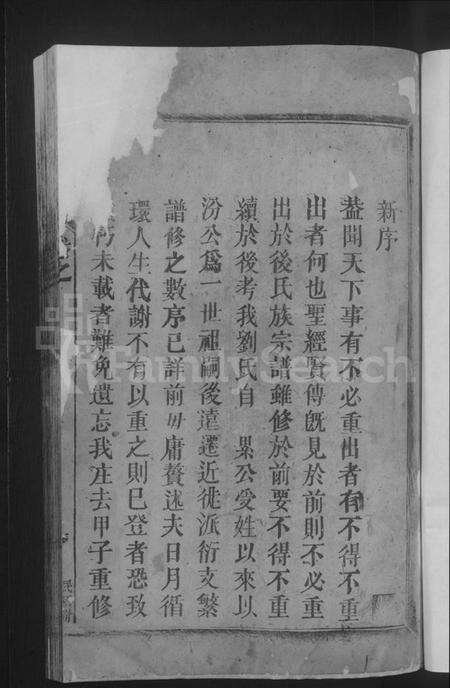 新序
葢聞天下事有不必重出者有不得不重
出者何也聖經賢傳旣見於前則不必重
出於後氏族宗譜雖修於前要不得不重
續於後考我劉氏自 累公受姓以來以
汾公爲一世祖嗣後遠遷近徙派衍支繁
譜修之數序已詳前毋庸贅述夫日月循
環人生代謝不有以重之則已登者恐致
未載者難免遺忘我庄去甲子重修
FamilySearch